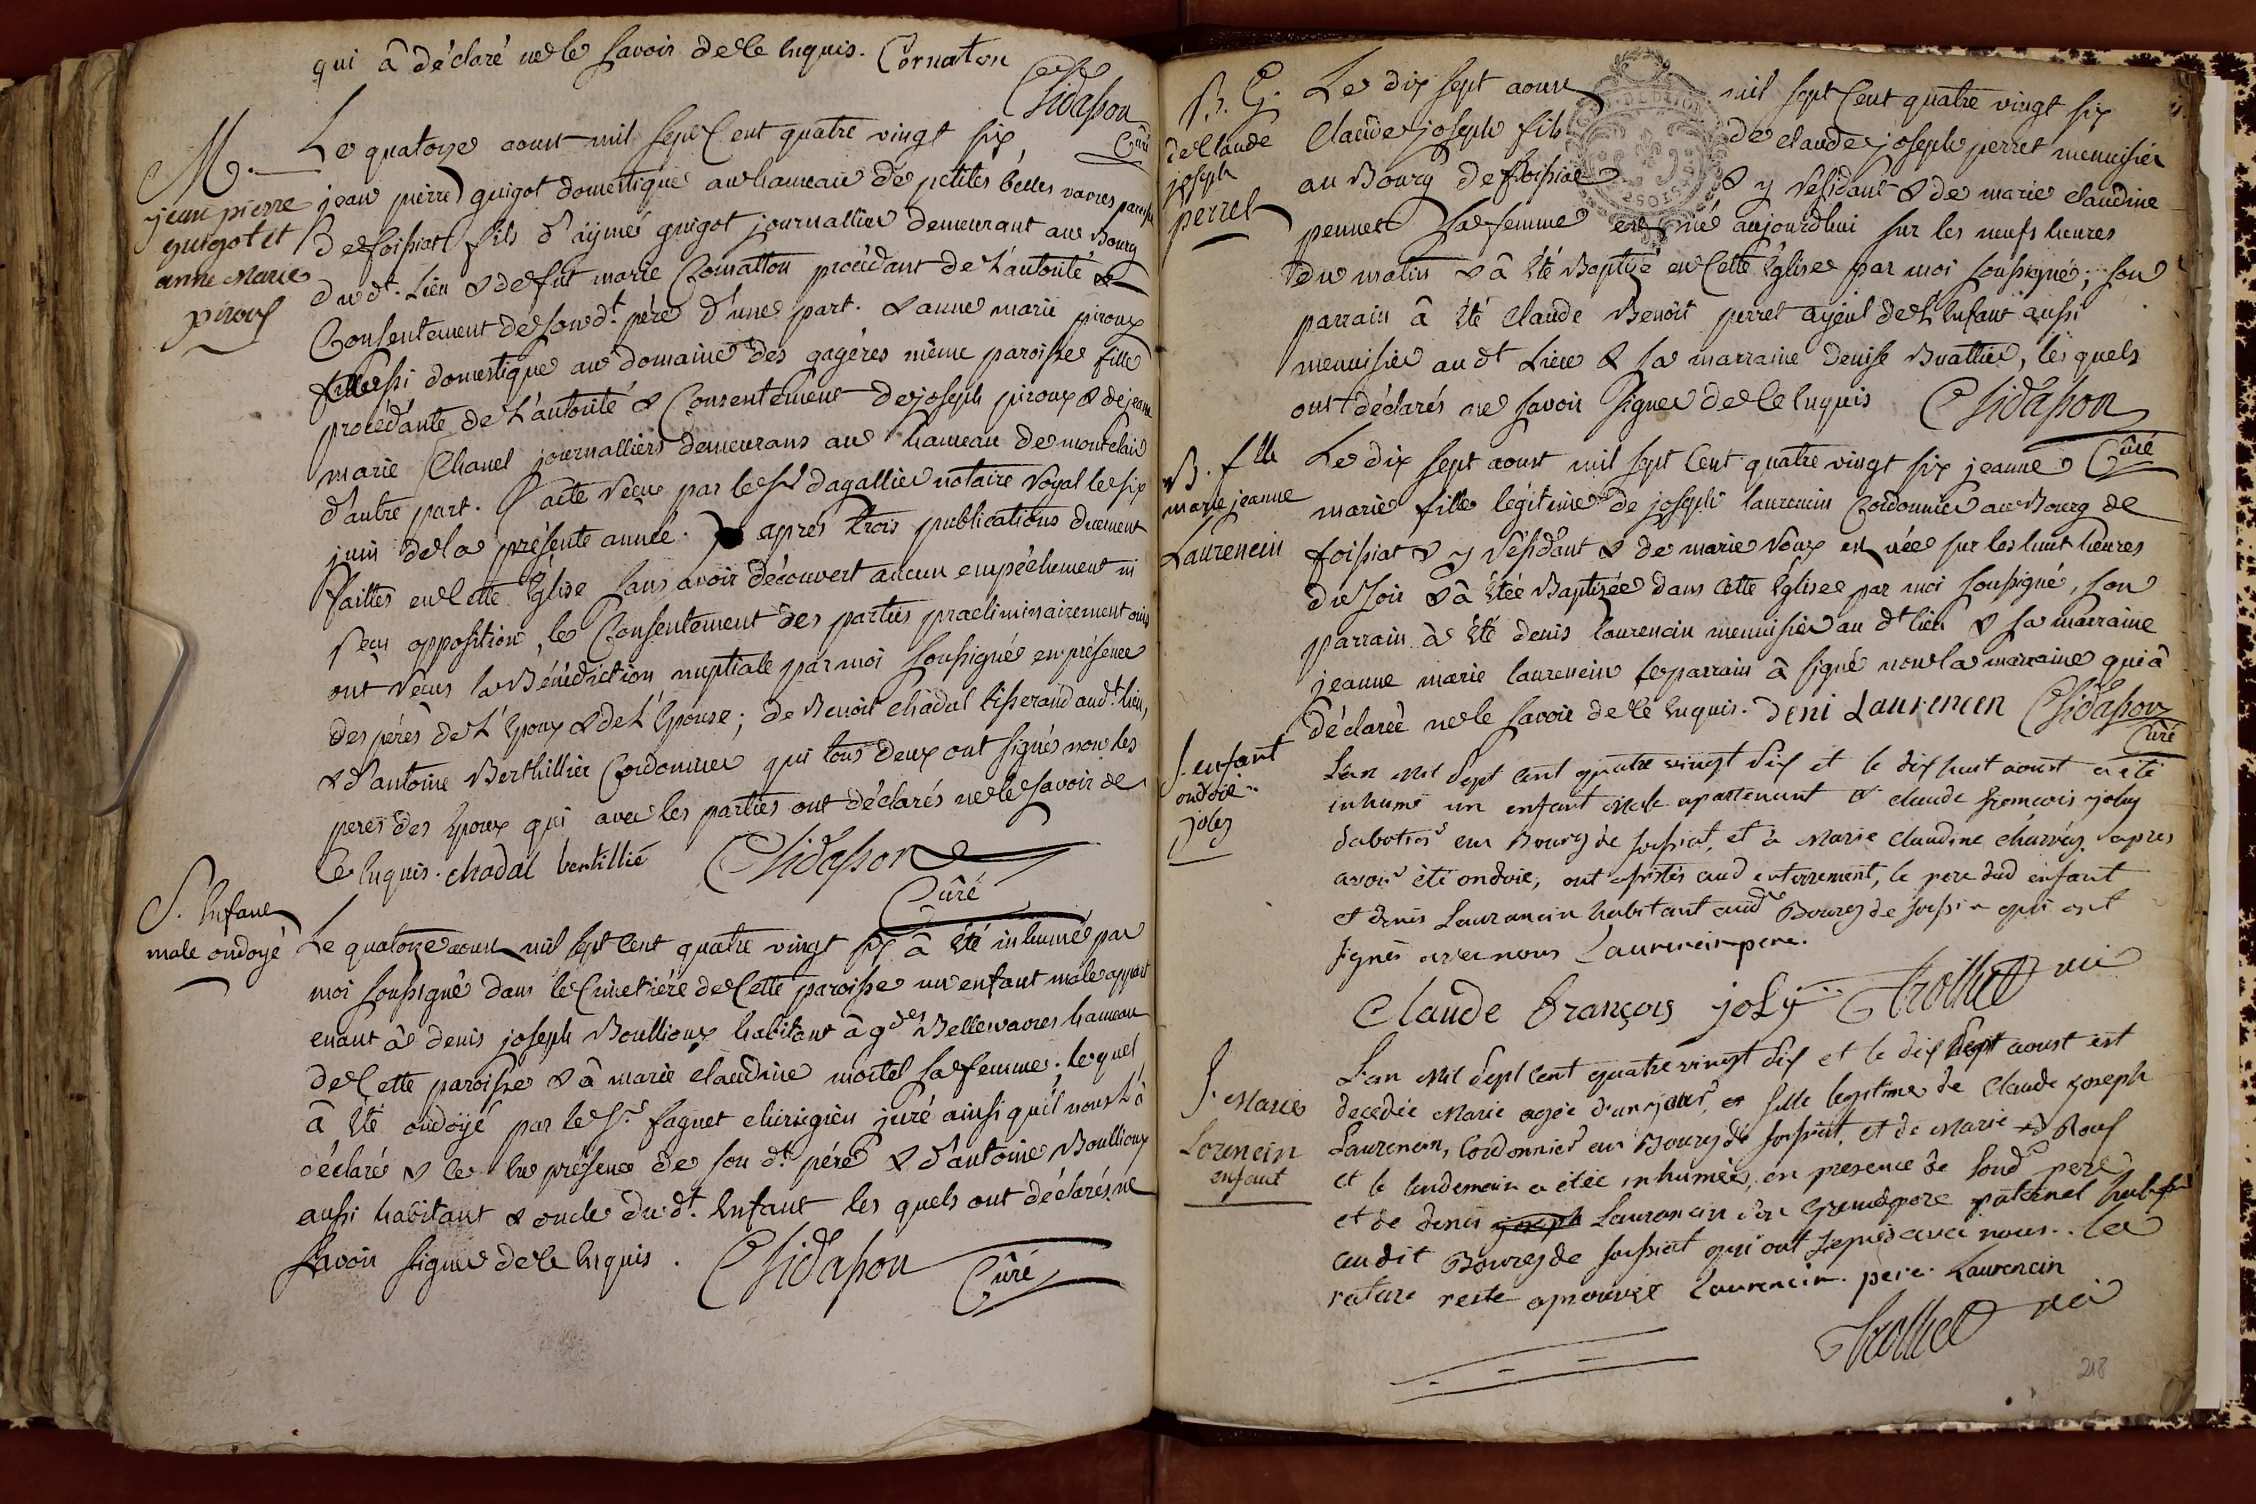 qui â déclaré ne le savoir de ce enquis. Cornaton
Chidasson
Curé
M.
jean pierre
guigot et
anne Marie
piroux
Le quatorze aoust mil sept Cent quatre vingt six
jean pierre guigot domestique au hameau de petites belles vavres paroisse
de foissiat fils d'aÿmé guigot journallier demeurant au Bourg
du dt. Lieu & de fut marie Cornatton procédant de L'autorité &
Consentement de son dt. père d'une part. & anne marie piroux
aussi domestique au domaine des gagères même paroisse fille
procédante de L'autorité & Consentement de joseph piroux & de jeanne
marie Chanel journalliers demeurans au hameau de montclair
d'autre part. L'acte reçu par le Sr dagallier notaire Royal le six
juin de la présente année. après trois publications duement
faittes en Cette Église sans avoir découvert aucun empêchement ni
reçu opposition, le Consentement des parties praeliminairement ouis
ont reçus la Bénédiction nuptiale par moi soussigné en présence
des pères de L'Epoux & de L'Epouse; de Benoit chadal tisserand audt. lieu,
& d'antoine Berthillier Cordonnier qui tous deux ont signés non les
peres des Epoux qui avec les parties ont déclarés ne le savoir de
Ce enquis. chadal bertillié Chidasson
Curé
S. Enfant
male ondoyé
Le quatorze aoust mil sept Cent quatre vingt six â Eté inhumé par
moi soussigné dans le Cimetière de Cette paroisse un enfant male appart
enant â denis joseph Boullioux habitant â gdes Bellesvavres hameau
de Cette paroisse & â marie claudine mortel sa femme; lequel
â Eté ondoyé par le Sr. faguet chirurgien juré ainsi qu'il nous L'â
déclaré & ce En présence de son dt. père & d'antoine Boullioux
aussi habitant & oncle du dt. Enfant les quels ont déclarés ne
savoir signer de ce Enquis. Chidasson
Curé
B. G.
de Claude
joseph
perret
Le dix sept aoust mil sept Cent quatre vingt six
Claude joseph fils de claude joseph perret menuisier
au Bourg de foissiat & y résidant & de marie claudine
pennet sa femme est né aujourdhui sur les neufs heures
du matin & â Eté Baptizé en Cette Eglise par moi soussigné; son
parrain â Eté claude Benoit perret ayeul de L'Enfant aussi
menuisier au dt Lieu & sa marraine denise Buattier, les quels
ont déclarés ne savoir signer de Ce Enquis Chidasson
Curé
B. fille
marie jeanne
Laurencin
Le dix sept aoust mil sept Cent quatre vingt six jeanne
marie fille légitime de joseph laurencin Cordonnier au Bourg de
foissiat & y résidant & de marie Roux est née sur les huit heures
du soir & â étée Baptizée dans Cette Eglise par moi soussigné, son
parrain â Eté denis laurencin menuisier au dt lieu & sa marraine
jeanne marie laurencin le parrain â signé non la marraine qui â
déclarée ne le savoir de Ce Enquis. Deni Laurencen Chidasson
Curé
S. enfant
ondoié
joly
L'an mil sept cent quatre vingt six et le dix huit aoust a été
inhumé un enfant male apartenant a claude françois joly
sabotier au Bourg de foissiat, et à Marie Claudine charvey. apres
avoir été ondoié, ont assistés aud enterrement, le pere dud enfant
et denis Laurancin habitant aud Bourg de foissia qui ont
signés avec nous Laurencin pere.
Claude françois joly Trolliet vic
S. Marie
Lorencin
enfant
L'an mil sept cent quatre vingt six et le dix sept aoust est
decedée Marie agée d'un jour, fille legitime de Claude joseph
Laurencin, Cordonnier au Bourg de foissiat, et de Marie Rouf
et le lendemain a étée inhumée, en presence de Sond pere
et de denis joseph Laurancin son Grand pere paternel
audit Bourg de foissiat qui ont signés avec nous. La
rature reste aprouvée Laurencin pere. Laurencin
Trolliet vic
218